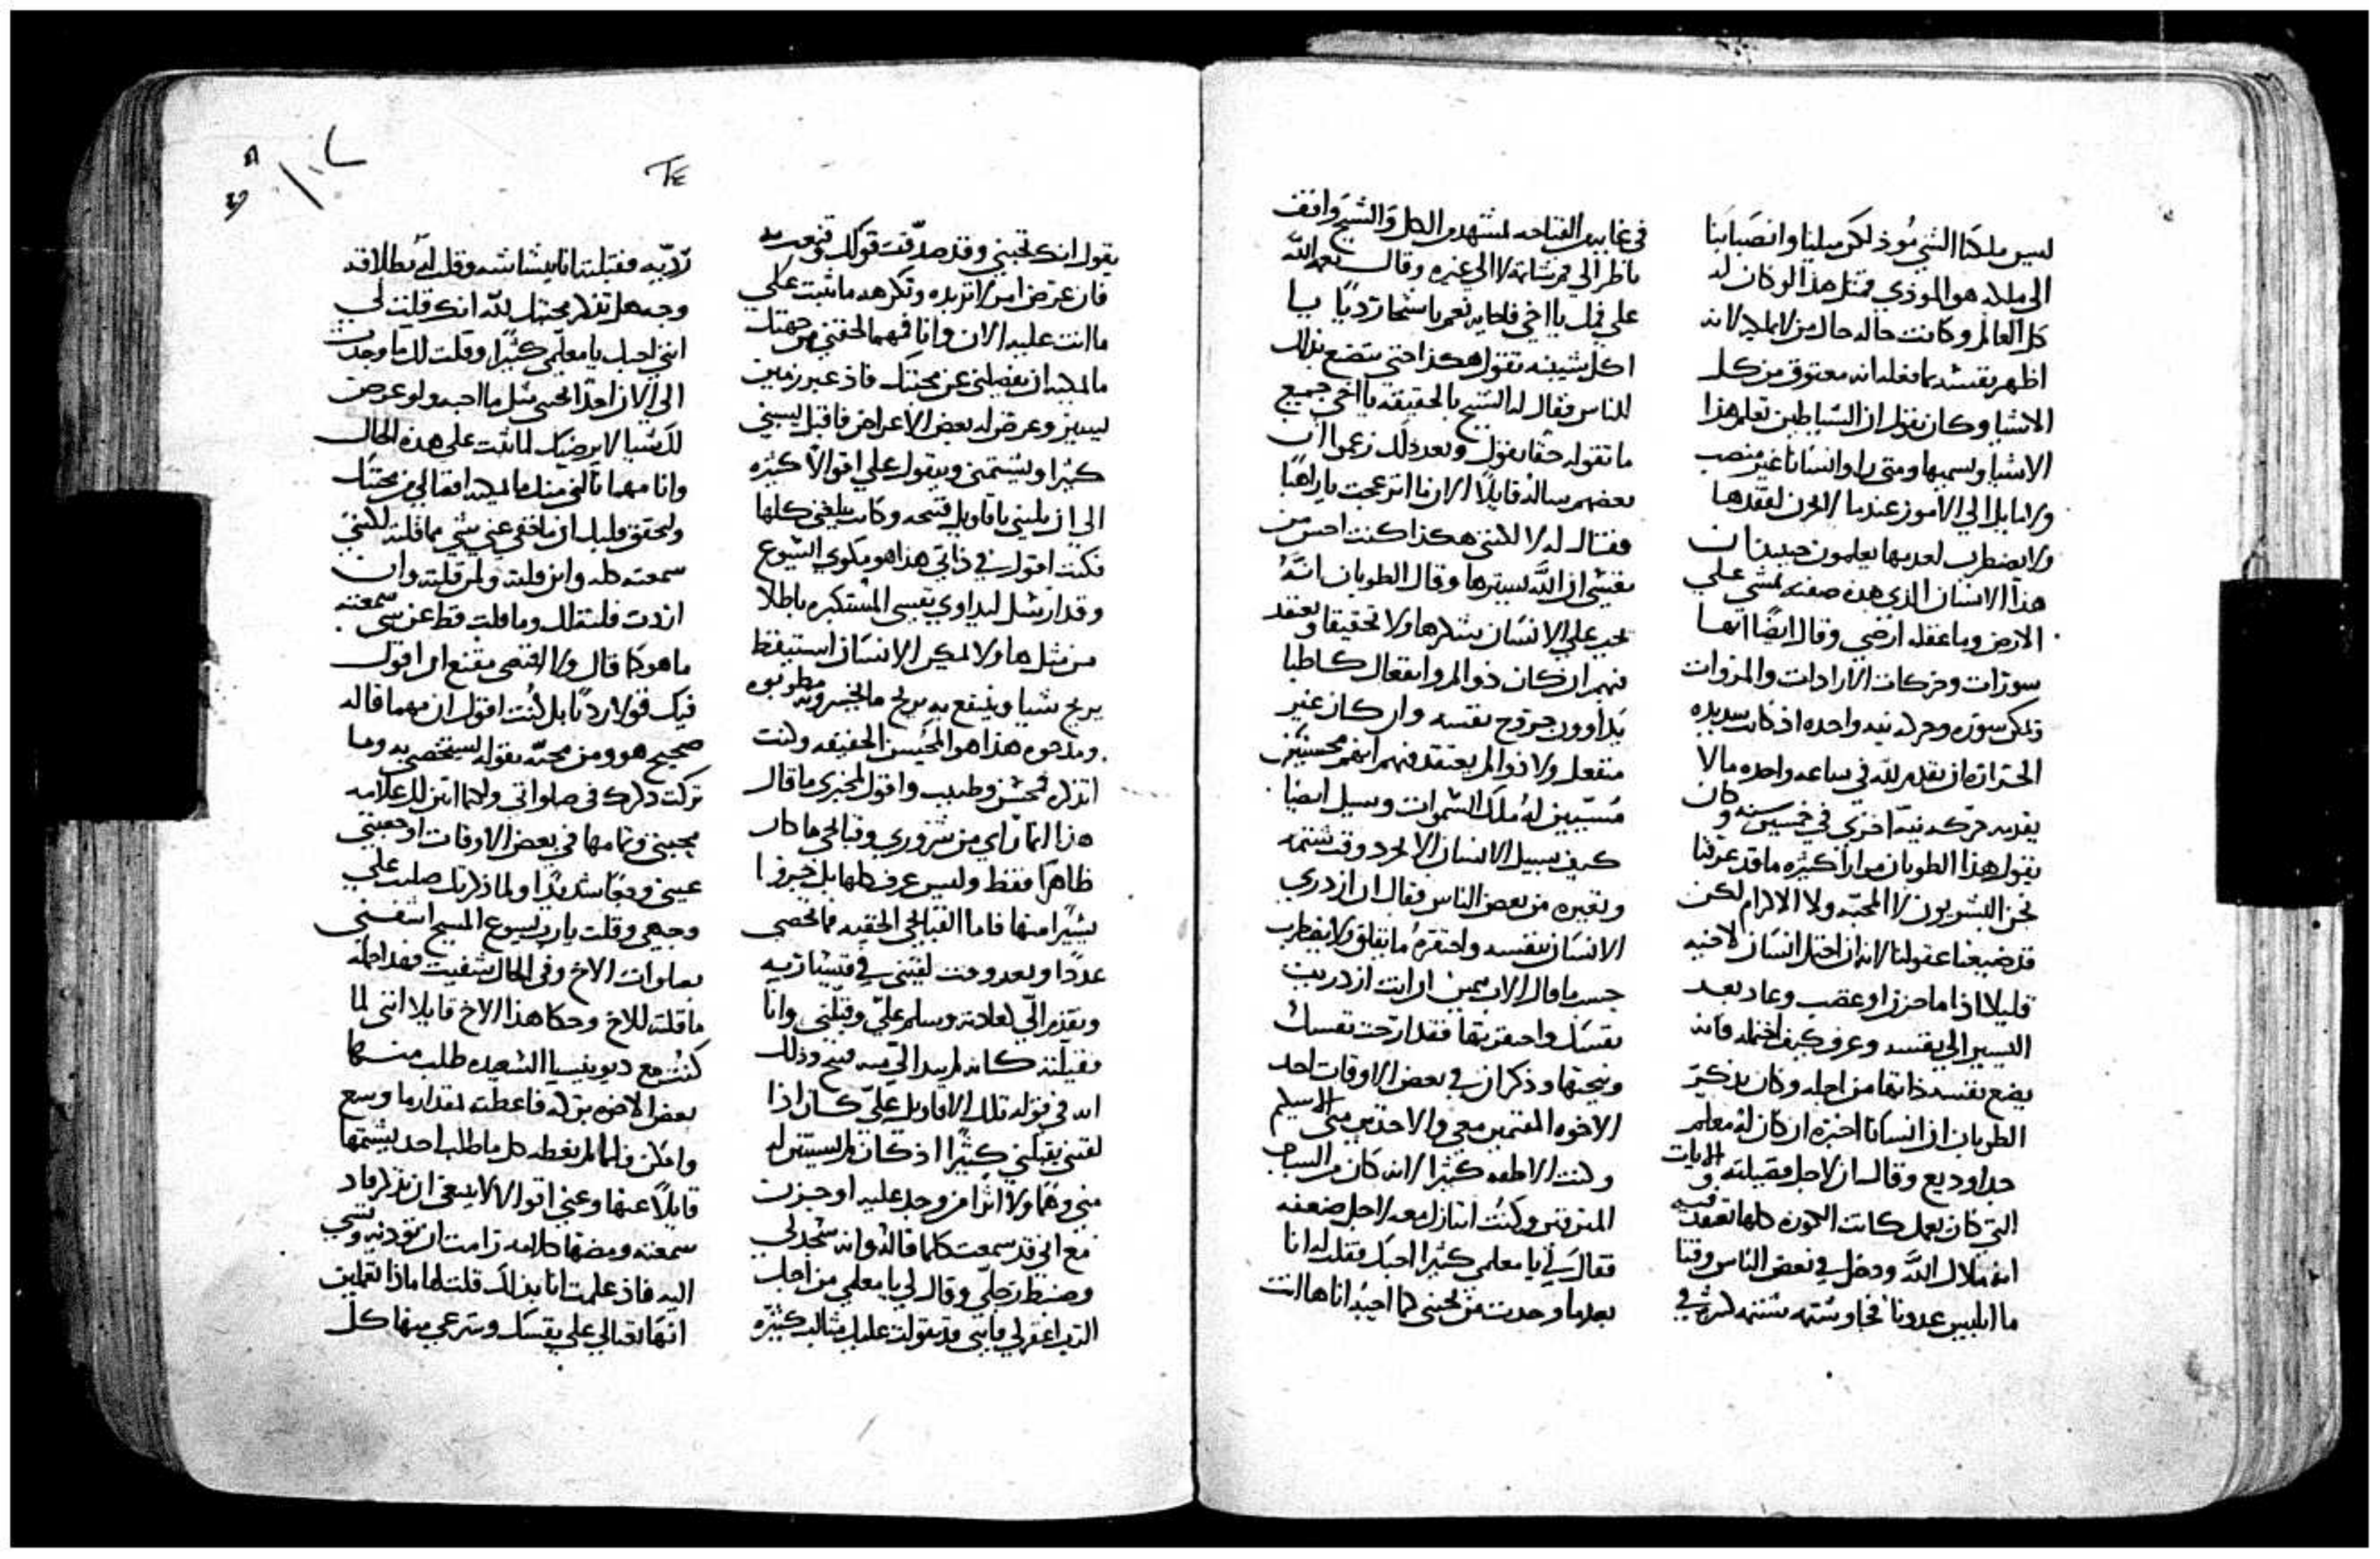 ليس ملكنا الشي مؤذ لكن ميلنا وانصبابنا
الى ملكه هو الموذي فمثل هذا لو كان له
كل العالم وكانت حاله حال من لا يملكه لانه
اظهر بفتشه بما فعله انه معتوق من كل
الاشيا وكان يقول ان الشياطين تعلم هذا
الاشيا وتسميها ومتى راوا انسانا غير منصب
ولا مايلا الى الامور عندما لا يحزن لفقدها
ولا يضطرب لعدمها يعلمون حينيذ ان
هذا الانسان الذي هذه صفته يمشي على
الارض وما عقله ارضي وقال ايضا انها
سورات وحركات الارادات والمزوات
تمكن سوره وحركه نيه واحده اذ كانت شديده
الحراره ان تقدم لله في ساعه واحده ما لا
يقدمه حركه نيه اخرى في خمسين سنه وكان
يقول هذا الطوبان مرارا كثيره ما قد عرفنا
نحن البشريون لا المحبه ولا الاكرام لكن
قد ضيعنا عقولنا لانه ان احتمل انسان لاخيه
قليلا اذا ما حزن او غضب وعاد بعد
اليسير الى نفسه وعرف كيف احتمله فانه
يضع نفسه ذاتها من اجله وكان يذكر
الطوبان ان انسانا اخبره ان كان له معلم
جدا وديع وقال ان لاجل فضيلته والايات
التي كان يعمل كانت الكوره كلها تعتقد فيه
انه ملاك الله ودخل في بعض الناس وقتا
ما ابليس عدونا فجا وشتمه شتيمه
في غايت القباحه بمشهد من الكل والشيخ واقف
ناظر الى فم شاتمه لا الى غيره وقال نعمة الله
على فمك يا اخي
اكل شبيبته تقول هكذا حتى يتضع بذلك
للناس فقال له الشيخ بالحقيقه يا اخي جميع
ما تقوله حقا تقول وبعد ذلك زعموا ان
بعضهم ساله قايلا الان ما انزعجت يا راهبا
فقال له لا لكنني هكذا كنت احس من
نفسي ان الله يسترها وقال الطوبان انه
يجب على الانسان يشكر هاولا تحقيقا ويعتقد
فيهم ان كان ذو الم وانفعال كاطبا
يداوون جروح نفسه وان كان غير
منفعل ولا ذو الم يعتقد فيهم انهم محسنين
مسببين له ملك السموات وسيل ايضا
كيف سبيل الانسان الا يحرد وقت شتمه
وتعيره من بعض الناس فقال ان ازدرى
الانسان بنفسه واحتقره ما يقلق ولا يضطرب
حسب ما قال الاب بيمين ان انت ازدريت
نفسك واحتقرتها فقد ارحت نفسك
ونيحتها وذكر ان في بعض الاوقات احد
الاخوه المقيمين معي والاخذين مني الاسكيم
وكنت الاطفه كثيرا لانه كان من الشباب
المترفين وكنت اتنازل معه لاجل ضعفه
فقال لي يا معلمي كثيرا احبك فقلت له انا
بعدما وجدت من يحبني كما احبه انا ها انت
يقول انك تحبني وقد صدقت قولك وقنعت به
فان عرض امر لا تريده وتكرهه ما تثبت على
ما انت عليه الان وانا فمهما لحقني من جهتك
ما يمكنه ان يفصلني عن محبتك فاذ عبر زمين
يسير وعرض له بعض الاعراض فاقبل يسبني
كثيرا ويشتمني ويقول علي اقوالا كثيره
الى ان بليني باقاويل قبيحه وكانت تبلغني كلها
فكنت اقول في ذاتي هذا هو مكوي اليسوع
وقد ارسل ليداوي نفسي المستكبره باطلا
من مثل هاولا يمكن الانسان ان استيقظ
يربح شيا وينتفع به بربح ما يخسرونه مطوبوه
ومادحوه هذا هو المحسن الحقيقه وكنت
اتذكره كمحسن وطبيب واقول لمخبري ما قال
هذا انما راى من شروري وقبايحي ما كان
ظاهرا فقط وليس عرف كلها بل جزوا
يسيرا منها فاما القبايح الخفيه فما تحصى
عددا وبعد وقت لقيني في قيسارية
وتقدم الي كعادته وسلم علي وقبلني وانا
فقبلته كانه لم يبد الي منه قبيح وذلك
انه في قوله تلك الاقاويل علي كان اذا
لقيني يقبلني كثيرا اذ كان لم يستبن له
مني وهما ولا اثرا من وجد عليه او حزن
مع اني قد سمعت كلما قاله وانه سجد لي
وضبط رجلي وقال لي يا معلمي من اجل
الرب اغفر لي فانني قد تقولت عليك مثالب كثيره
رديه فقبلته انا ببشاشه وقلت له بطلاقة
وجه هل تذكر محبتك لله انك قلت لي
انني احبك يا معلمي كثيرا وقلت لك ما وجدت
الى الان احدا يحبني مثل ما احبه ولو عرض
لك شيا لا يرضيك لما تثبت على هذه الحال
وانا مهما نالني منك ما يمكنه انتقالي من محبتك
وليحقق قلبك ان ما خفي عني شي مما قلته لكنني
سمعته كله واين قلته ولمن قلته وان
اردت قلته لك وما قلت قط عن شي سمعته
ما هو كما قال ولا اقنعني مقنع ان اقول
فيك قولا رديا بل كنت اقول ان مهما قاله
صحيح هو ومن محبته يقوله ليستخصني به وما
تركت ذكرك في صلواتي ولكما ابين لك علامه
محبتي وتمامها في بعض الاوقات اوجعتني
عيني وجعا شديدا ولما ذكرتك صلبت على
وجهي وقلت يا رب يسوع المسيح اشفني
بصلوات الاخ وفي الحال شفيت فهذا جمله
ما قلته للاخ وحكا هذا الاخ قايلا انني لما
كنت مع ديونيسيا الشعيده طلب منها
بعض الاخوه بركه فاعطته بمقدار ما وسع
وامكن فلما لم تعطه كل ما طلب اخذ يشتمها
قايلا عنها وعني اقوالا لا ينبغي ان تذكر فاذ
سمعته ومضها كلامه رامت ان تؤذيه وتسي
اليه فاذ علمت انا بذلك قلت لها ماذا تعملين
انها تغتالي على نفسك وتنزعي منها كل